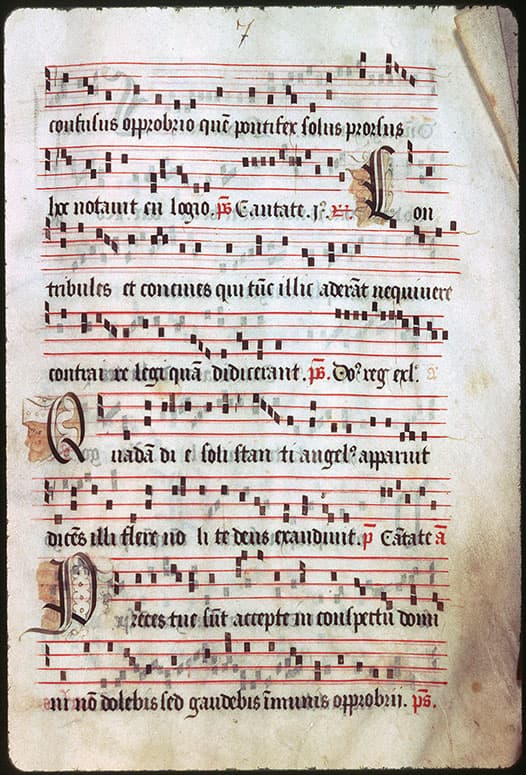 7
confusus opprobrio quē pontifex solus prorsus
hoc notauit eu logio. ps̄ Cantate. j°. xi. Con
tribules et concines qui tūc illic aderāt nequiuere
contrai re legi quā didicerant. ps̄. Do° reg exl.
Quadā di e soli stan ti angel° apparuit
dicēs illi flere no li te deus exaudiuit. p̄ Cātate ā
Preces tue sūt accepte in conspectu domi
ni nō dolebis sed gaudebis īmunis opprobrii. ps̄.